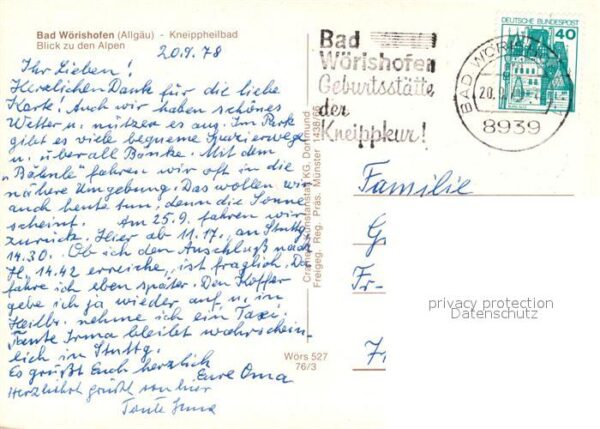 Bad Wörishofen (Allgäu) - Kneippheilbad
Blick zu den Alpen
20.9.78
Ihr Lieben!
Herzlichen Dank für die liebe
Karte! Auch wir haben schönes
Wetter u. nützen es aus. Im Park
gibt es viele bequeme Spazierwege
u. überall Bänke. Mit dem
"Bähnle" fahren wir oft in die
nähere Umgebung. Das wollen wir
auch heute tun, denn die Sonne
scheint. Am 25.9. fahren wir
zurück. Hier ab 11.17. an Stuttg.
14.30. Ob ich den Anschluß nach
H. 14.42 erreiche, ist fraglich. Da
fahre ich eben später. Den Koffer
gebe ich ja wieder auf u. in
Heilbr. nehme ich ein Taxi.
Tante Irma bleibt wahrschein-
lich in Stuttg.
Es grüßt Euch herzlich
Eure Oma
Herzlichst grüßt von hier
Tante Irma
Cramers Kunstanstalt KG, Dortmund
Freigeg. Reg. Präs. Münster 1438/66
Wörs 527
76/3
Bad
Wörishofen
Geburtsstätte
der
Kneippkur!
DEUTSCHE BUNDESPOST
40
BAD WÖRISH
20.9.
8939
Familie
G
Fr-
privacy protection
Datenschutz